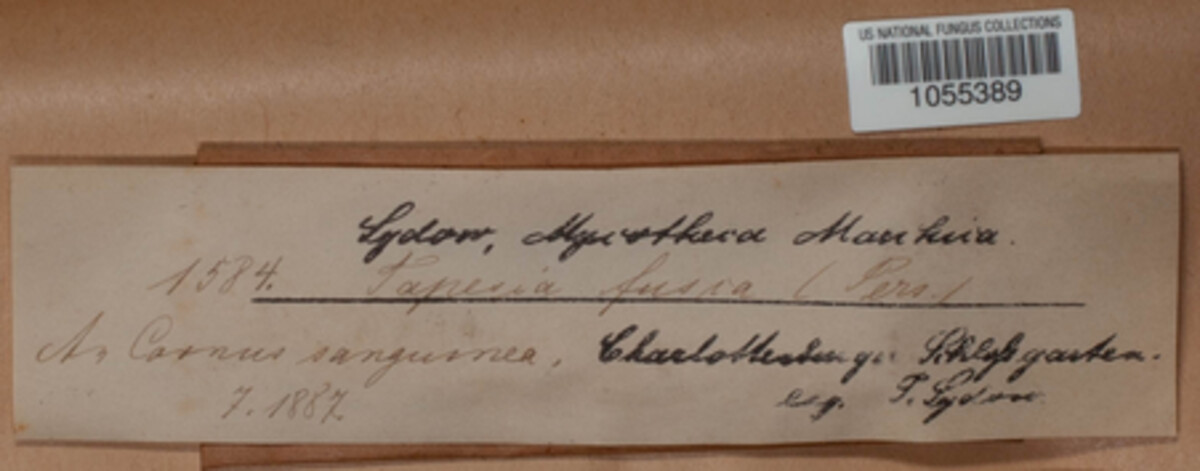 US NATIONAL FUNGUS COLLECTIONS
1055389
Sydow, Mycotheca Marchica.
1584. Tapesia fusca (Pers.)
An Cornus sanguinea, Charlottenburger Schloßgarten.
7. 1887. leg. P. Sydow